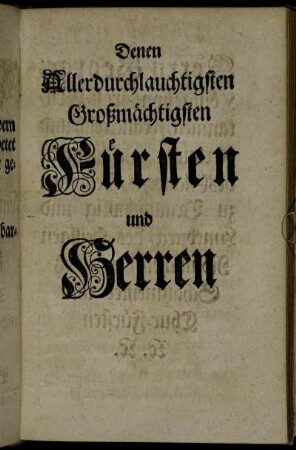 Denen
Allerdurchlauchtigsten
Großmächtigsten
Fürsten
und
Herren